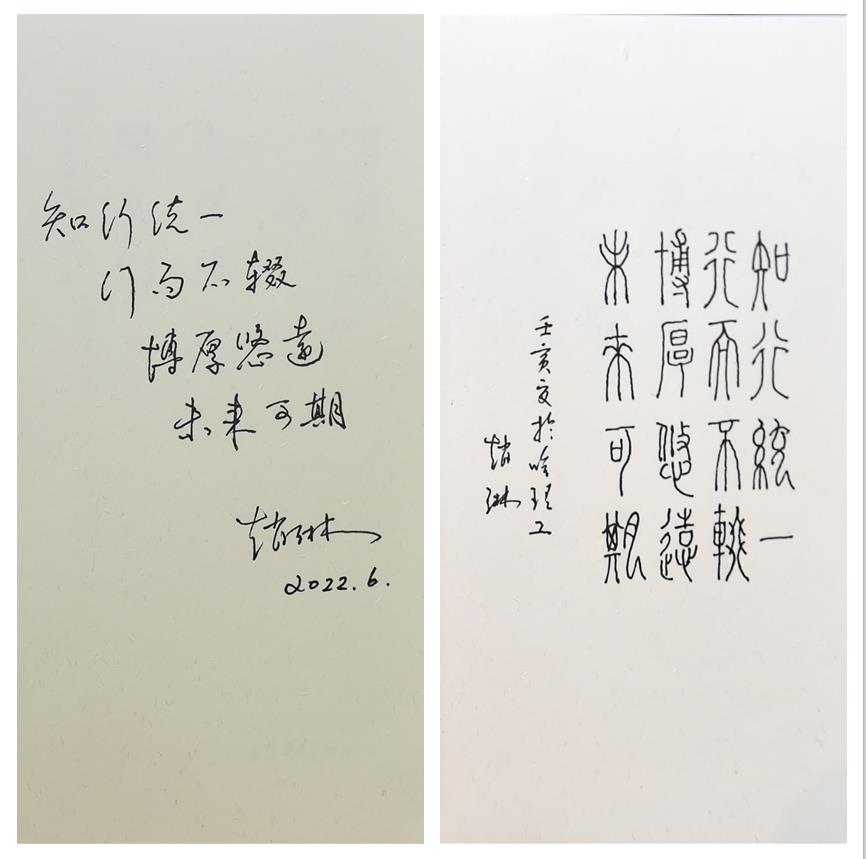 知行统一
行而不辍
博厚悠遠
未来可期
赵琳
2022.6.
知行統一
行而不輟
博厚悠遠
未来可期
壬寅夏於哈理工
赵琳